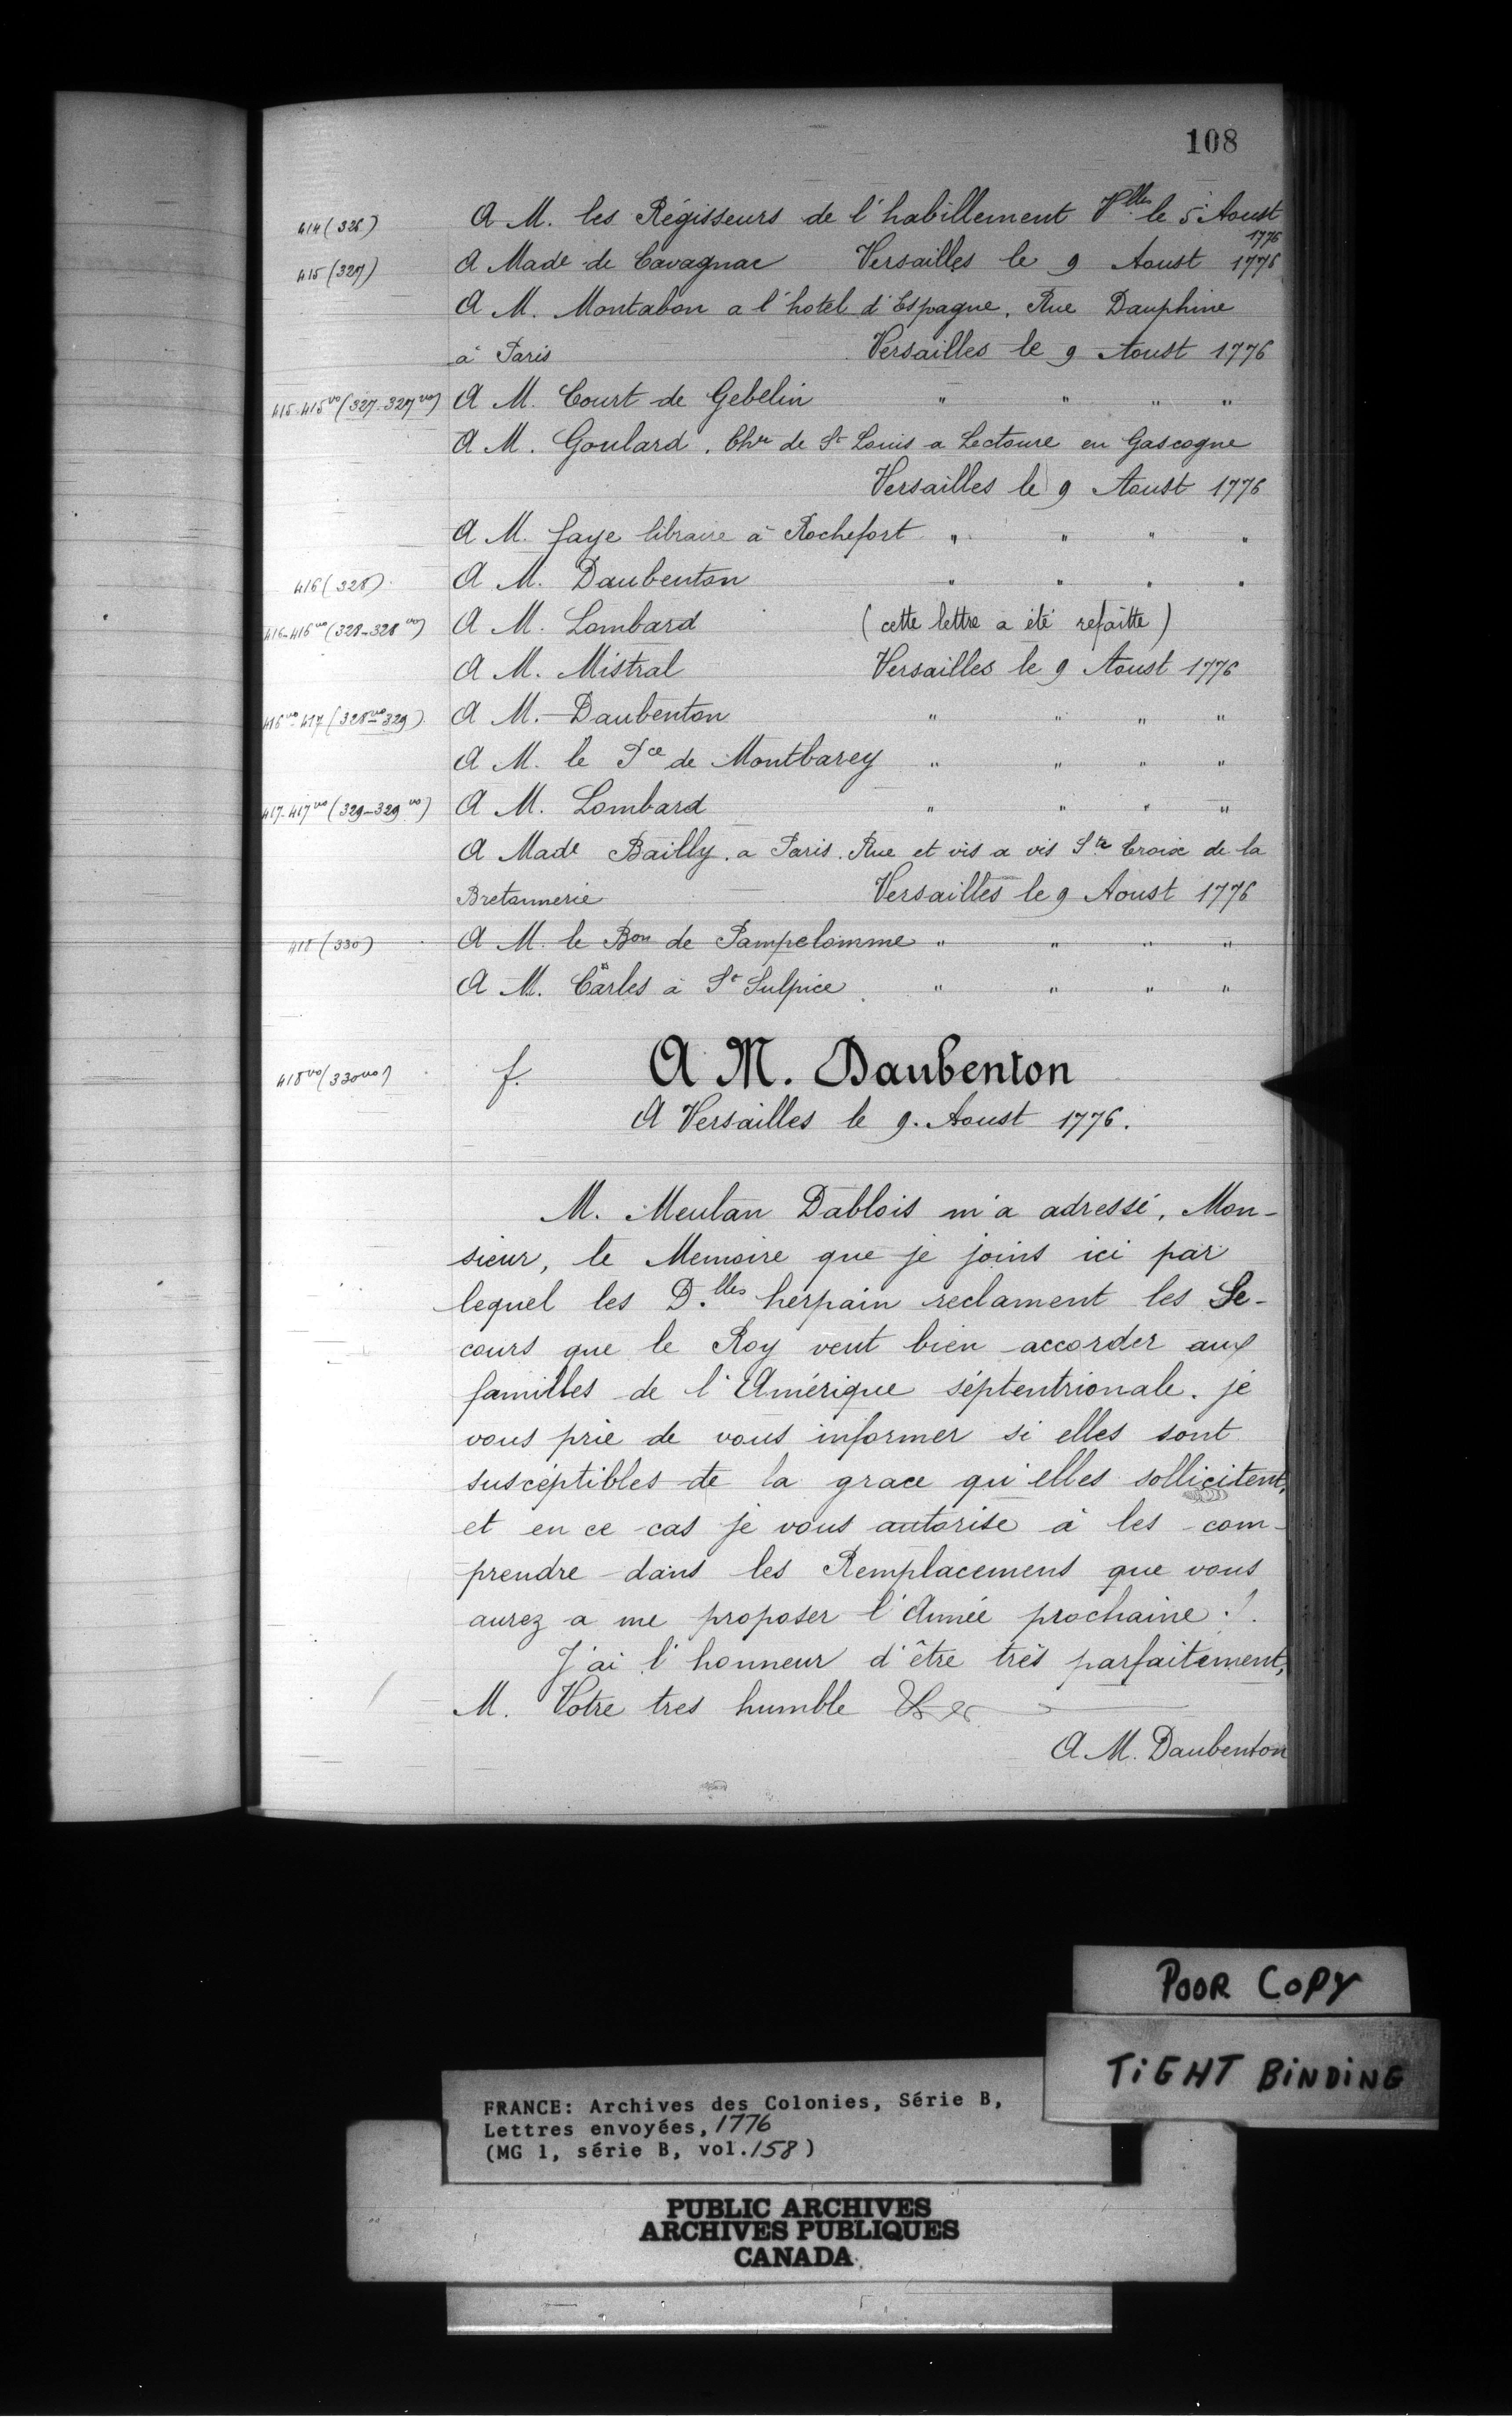 108
414 (326) A M. les Régisseurs de l'habillement Vlles le 5 Aoust 1776
415 (327) A Made de Cavagnac Versailles le 9 Aoust 1776
A M. Montabon a l'hotel d'Espagne, Rue Dauphine
à Paris Versailles le 9 Aoust 1776
415-415vo (327-327vo) A M. Court de Gebelin " " " "
A M. Goulard, Chr de St Louis a Lectoure en Gascogne
Versailles le 9 Aoust 1776
A M. faye libraire à Rochefort " " " "
416 (328) A M. Daubenton " " " "
416-416vo (328-328vo) A M. Lombard (cette lettre a été refaitte)
A M. Mistral Versailles le 9 Aoust 1776
416vo-417 (328vo-329) A M. Daubenton " " " "
A M. le Pce de Montbarey " " " "
417-417vo (329-329vo) A M. Lombard " " " "
A Made Bailly, a Paris. Rue et vis a vis Ste Croix de la
Bretonnerie Versailles le 9 Aoust 1776
418 (330) A M. le Bon de Pampelomme " " " "
A M. Carles à St Sulpice " " " "
418vo (330vo) f. A M. Daubenton
A Versailles le 9. Aoust 1776.
M. Meulan Dablois m'a adressé, Mon-
sieur, le Memoire que je joins ici par
lequel les D.lles herpain reclament les Se-
cours que le Roy veut bien accorder aux
familles de l'Amérique séptentrionale. je
vous prie de vous informer si elles sont
suscéptibles de la grace qu'elles sollicitent,
et en ce cas je vous autorise à les com-
prendre dans les Remplacemens que vous
aurez a me proposer l'Année prochaine./.
J'ai l'honneur d'être très parfaitement,
M. Votre tres humble &c
A M. Daubenton
POOR COPY
TIGHT BINDING
FRANCE: Archives des Colonies, Série B,
Lettres envoyées, 1776
(MG 1, série B, vol. 158)
PUBLIC ARCHIVES
ARCHIVES PUBLIQUES
CANADA